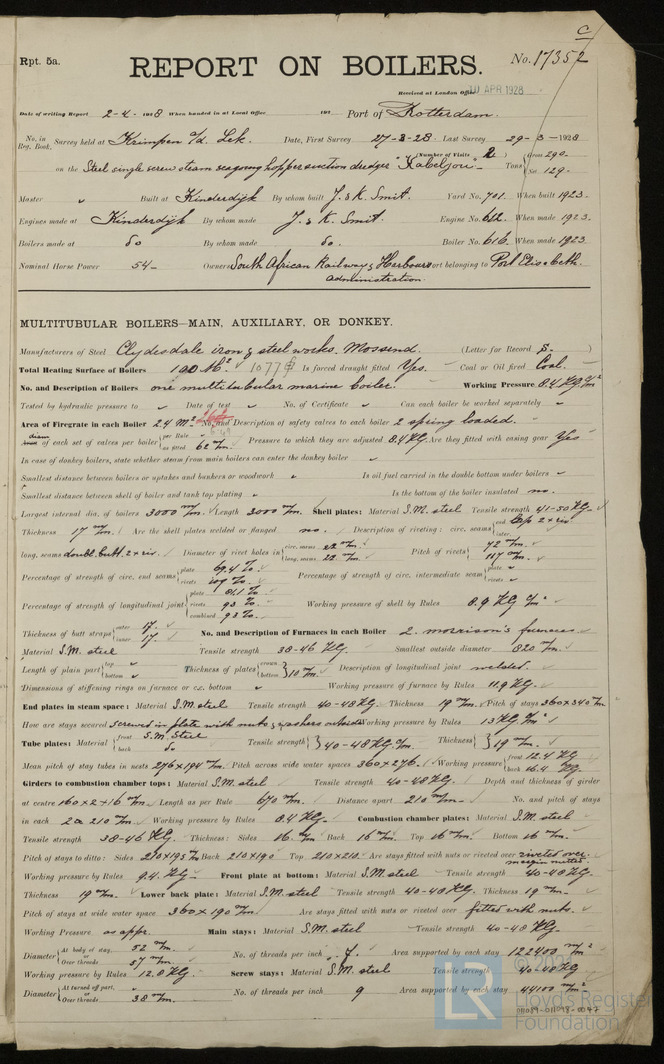 c
Rpt. 5a.
REPORT ON BOILERS.
No. 17352
Received at London Office 10 APR 1928
Date of writing Report 2-4-1928 When handed in at Local Office 192 Port of Rotterdam.
No. in Reg. Book. Survey held at Krimpen a/d. Lek. Date, First Survey 27-3-28 Last Survey 29-3-1928
(Number of Visits 2)
on the Steel single screw steam seagoing hopper suction dredger "Kabeljou" Tons {Gross 290. Net 129.
Master Built at Kinderdijk By whom built J. & K. Smit. Yard No. 701. When built 1923.
Engines made at Kinderdijk By whom made J. & K. Smit. Engine No. 612. When made 1923.
Boilers made at do By whom made do. Boiler No. 616. When made 1923
Nominal Horse Power 54- Owners South African Railway & Harbours Port belonging to Port Elisabeth.
administration.
MULTITUBULAR BOILERS—MAIN, AUXILIARY, OR DONKEY.
Manufacturers of Steel Clydesdale iron & steel works. Mossend. (Letter for Record S. )
Total Heating Surface of Boilers 100 M.² 1077 Is forced draught fitted Yes. Coal or Oil fired Coal.
No. and Description of Boilers one multitubular marine boiler. Working Pressure 8.4 KG
Tested by hydraulic pressure to Date of test No. of Certificate Can each boiler be worked separately
Area of Firegrate in each Boiler 2.4 M² No. and Description of safety valves to each boiler 2 spring loaded.
diam of each set of valves per boiler {per Rule as fitted 62 m/m. Pressure to which they are adjusted 8.4 KG. Are they fitted with easing gear Yes
In case of donkey boilers, state whether steam from main boilers can enter the donkey boiler
Smallest distance between boilers or uptakes and bunkers or woodwork Is oil fuel carried in the double bottom under boilers
Smallest distance between shell of boiler and tank top plating Is the bottom of the boiler insulated no.
Largest internal dia. of boilers 3000 m/m Length 3000 m/m. Shell plates: Material S.M. steel Tensile strength 41-50 KG.
Thickness 17 m/m. Are the shell plates welded or flanged no. Description of riveting: circ. seams {end lap 2 x riv. inter.
long. seams doubl. butt. 2 x riv. Diameter of rivet holes in {circ. seams 22 m/m. long. seams 22 m/m. Pitch of rivets {72 m/m. 117 m/m.
Percentage of strength of circ. end seams {plate 69.4 % rivets Percentage of strength of circ. intermediate seam {plate rivets
Percentage of strength of longitudinal joint {plate 81.1 % rivets 93 % combined 93 % Working pressure of shell by Rules 8.9 KG
Thickness of butt straps {outer 17. inner 17. No. and Description of Furnaces in each Boiler 2. morrison's furnaces
Material S.M. steel Tensile strength 38-46 KG. Smallest outside diameter 820 m/m.
Length of plain part {top bottom Thickness of plates {crown bottom} 10 m/m. Description of longitudinal joint welded.
Dimensions of stiffening rings on furnace or c.c. bottom Working pressure of furnace by Rules 11.9 KG.
End plates in steam space: Material S.M. steel Tensile strength 40-48 KG. Thickness 19 m/m. Pitch of stays 360 x 340 m/m
How are stays secured screwed in plate with nuts & washers outside Working pressure by Rules 13 KG
Tube plates: Material {front S.M. Steel back do Tensile strength} 40-48 KG. Thickness} 19 m/m.
Mean pitch of stay tubes in nests 276 x 194 m/m. Pitch across wide water spaces 360 x 276. Working pressure {front 12.4 KG back 16.4 KG.
Girders to combustion chamber tops: Material S.M. steel Tensile strength 40-48 KG. Depth and thickness of girder
at centre 160 x 2 x 16 m/m. Length as per Rule 670 m/m. Distance apart 210 m/m. No. and pitch of stays
in each 2 a 210 m/m. Working pressure by Rules 8.4 KG. Combustion chamber plates: Material S.M. steel
Tensile strength 38-46 KG. Thickness: Sides 16 m/m Back 16 m/m. Top 16 m/m. Bottom 16 m/m.
Pitch of stays to ditto: Sides 210 x 195 m/m Back 210 x 190 Top 210 x 210. Are stays fitted with nuts or riveted over riveted over.
margin nutted.
Working pressure by Rules 9.4. KG. Front plate at bottom: Material S.M. steel Tensile strength 40-48 KG.
Thickness 19 m/m. Lower back plate: Material S.M. steel Tensile strength 40-48 KG. Thickness 19 m/m.
Pitch of stays at wide water space 360 x 190 m/m Are stays fitted with nuts or riveted over fitted with nuts.
Working Pressure as appr. Main stays: Material S.M. steel Tensile strength 40-48 KG.
Diameter {At body of stay, 52 m/m. or Over threads 57 m/m. No. of threads per inch 7. Area supported by each stay 122400 m/m²
Working pressure by Rules 12.8 KG. Screw stays: Material S.M. steel Tensile strength 40-48 KG
Diameter {At turned off part, or Over threads 38 m/m. No. of threads per inch 9 Area supported by each stay 44100 m/m²
LR
© 2020
Lloyd's Register
Foundation
011089-011098-0047